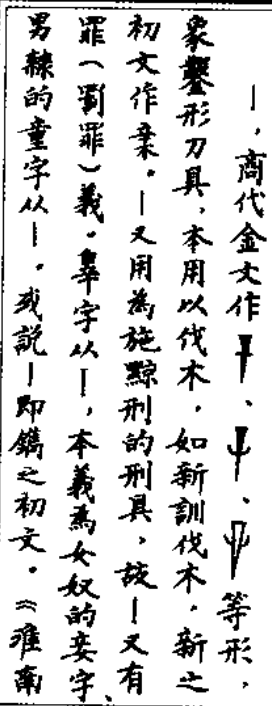 ｜，商代金文作、、等形，
象鑿形刀具，本用以伐木，如新訓伐木，新之
初文作亲。｜又用為施黥刑的刑具，故｜又有
罪（罰罪）義。辠字从｜，本義為女奴的妾字、
男隸的童字从｜。或説｜即鐫之初文。《淮南